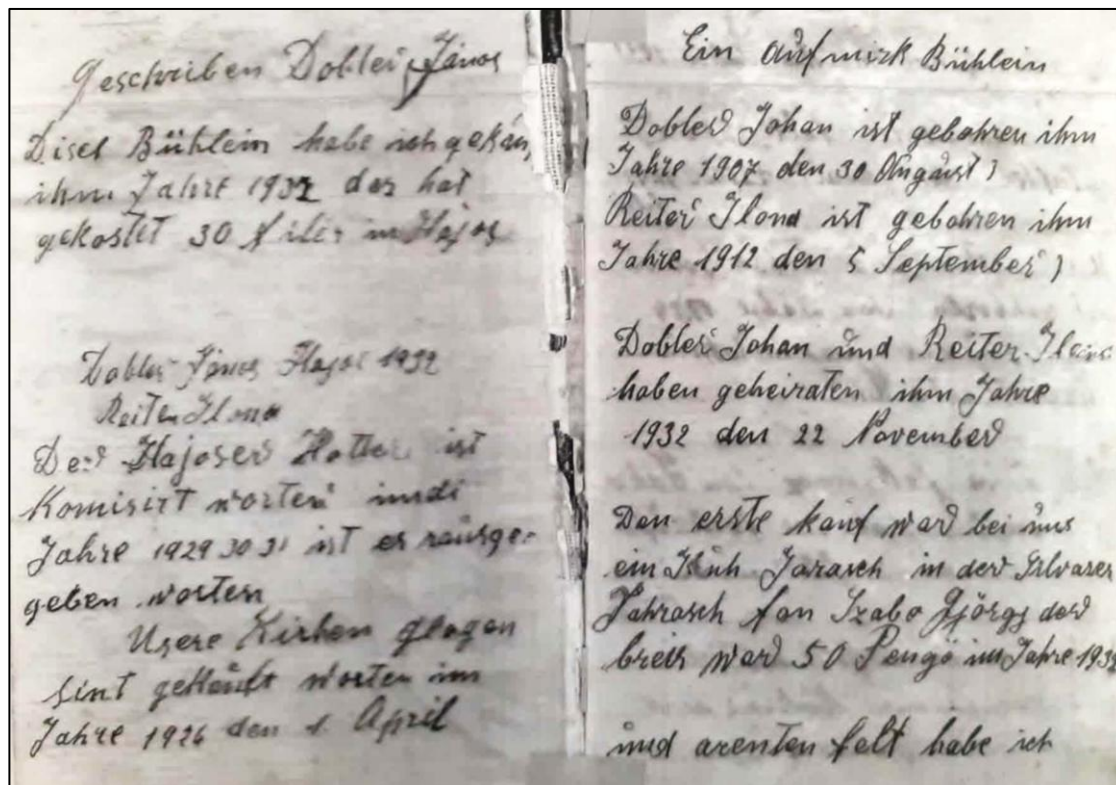 Geschrieben Dobler János
Disel Bühlein habe ich gekäu,
ihm Jahre 1932 der hat
gekostet 30 filer in Hajos
Dobler János Hajos 1932
Reiter Ilona
Der Hajoser Hotter ist
Komisirt worten
Jahre 1929 30 31 ist er raüsge-
geben worten
Usere Kirken glogen
sint gekäuft worten im
Jahre 1926 den 1. April
Ein aufmirk Bühlein
Dobler Johan ist gebohren ihm
Jahre 1907 den 30 Aŭgŭst)
Reiter Ilona ist gebohren ihm
Jahre 1912 den 5 September)
Dobler Johan und Reiter Ilona
haben geheiraten ihm Jahre
1932 den 22 November
Den erste kauf war bei uns
ein Jarasch in der
Jahrasch fon Szabo György der
breis war 50 Pengö im Jahre
und arenten felt habe ich